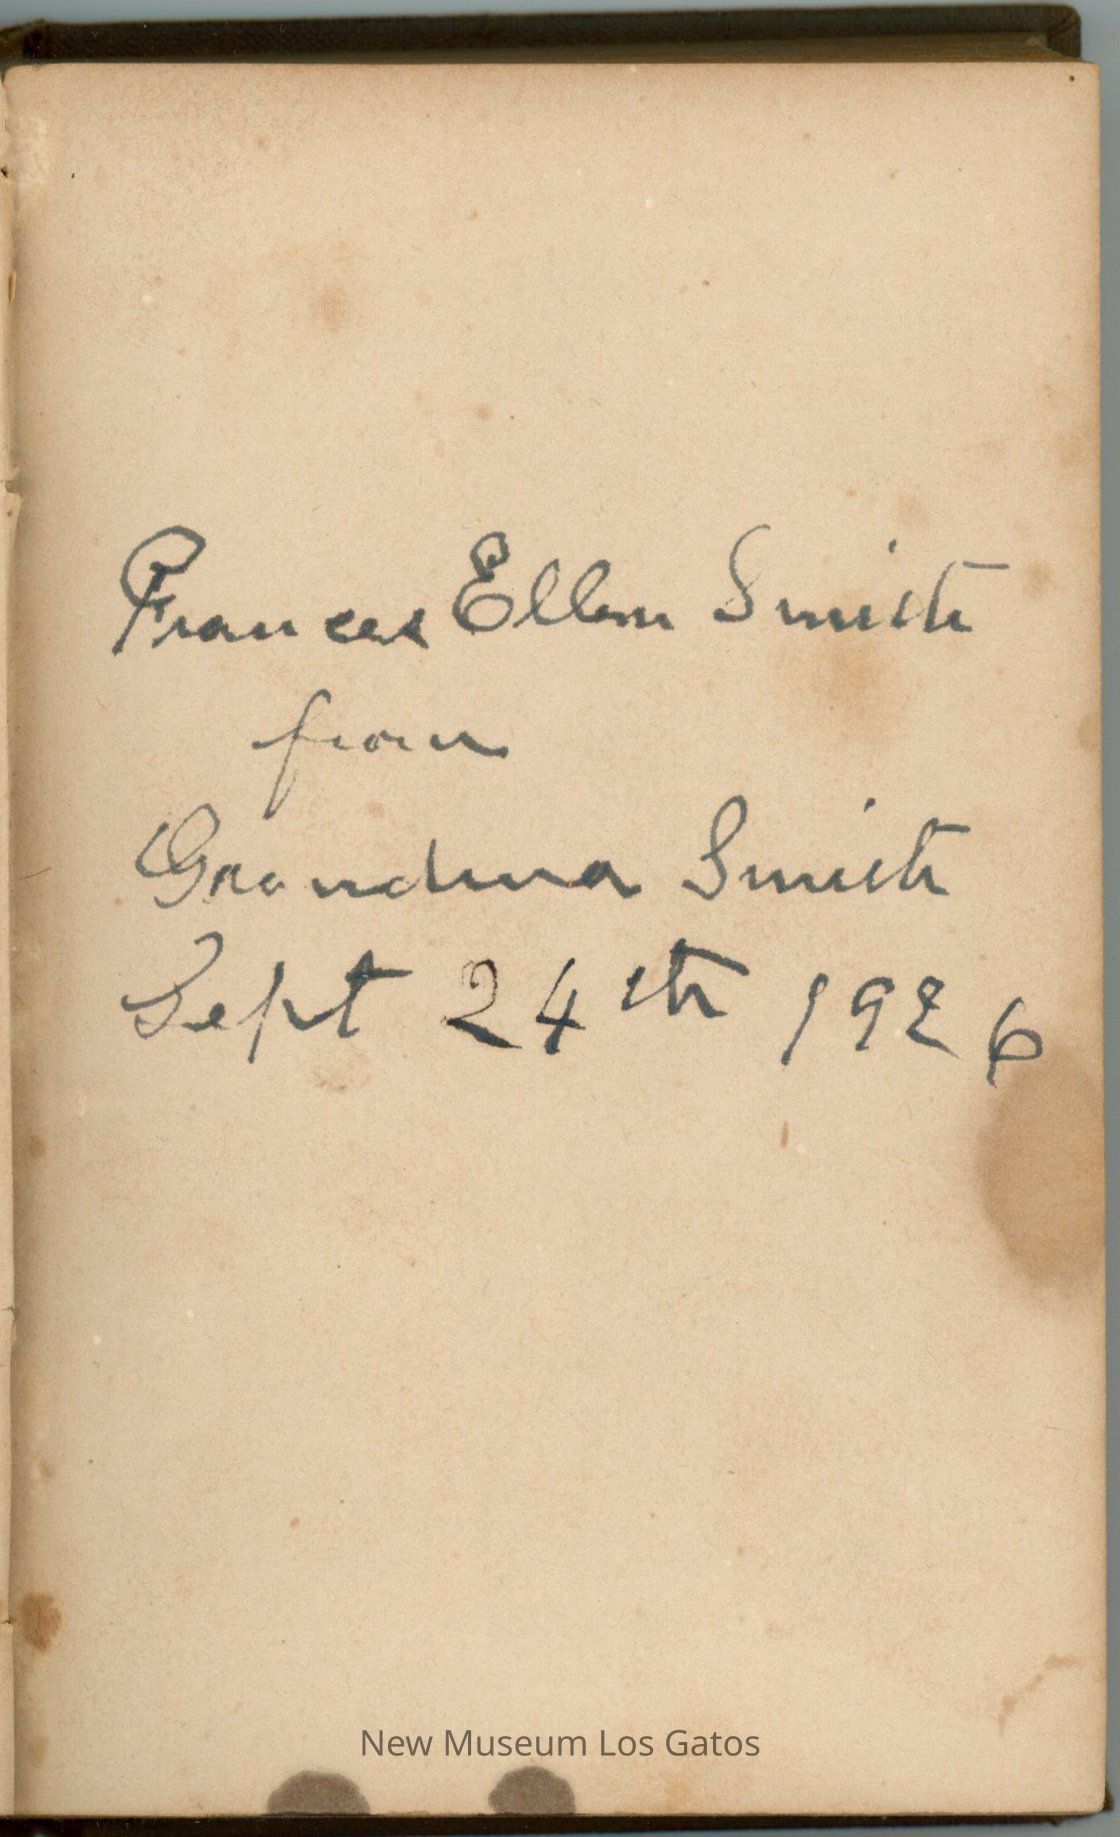 Frances Ellen Smith
from
Grandma Smith
Sept 24th 1926
New Museum Los Gatos